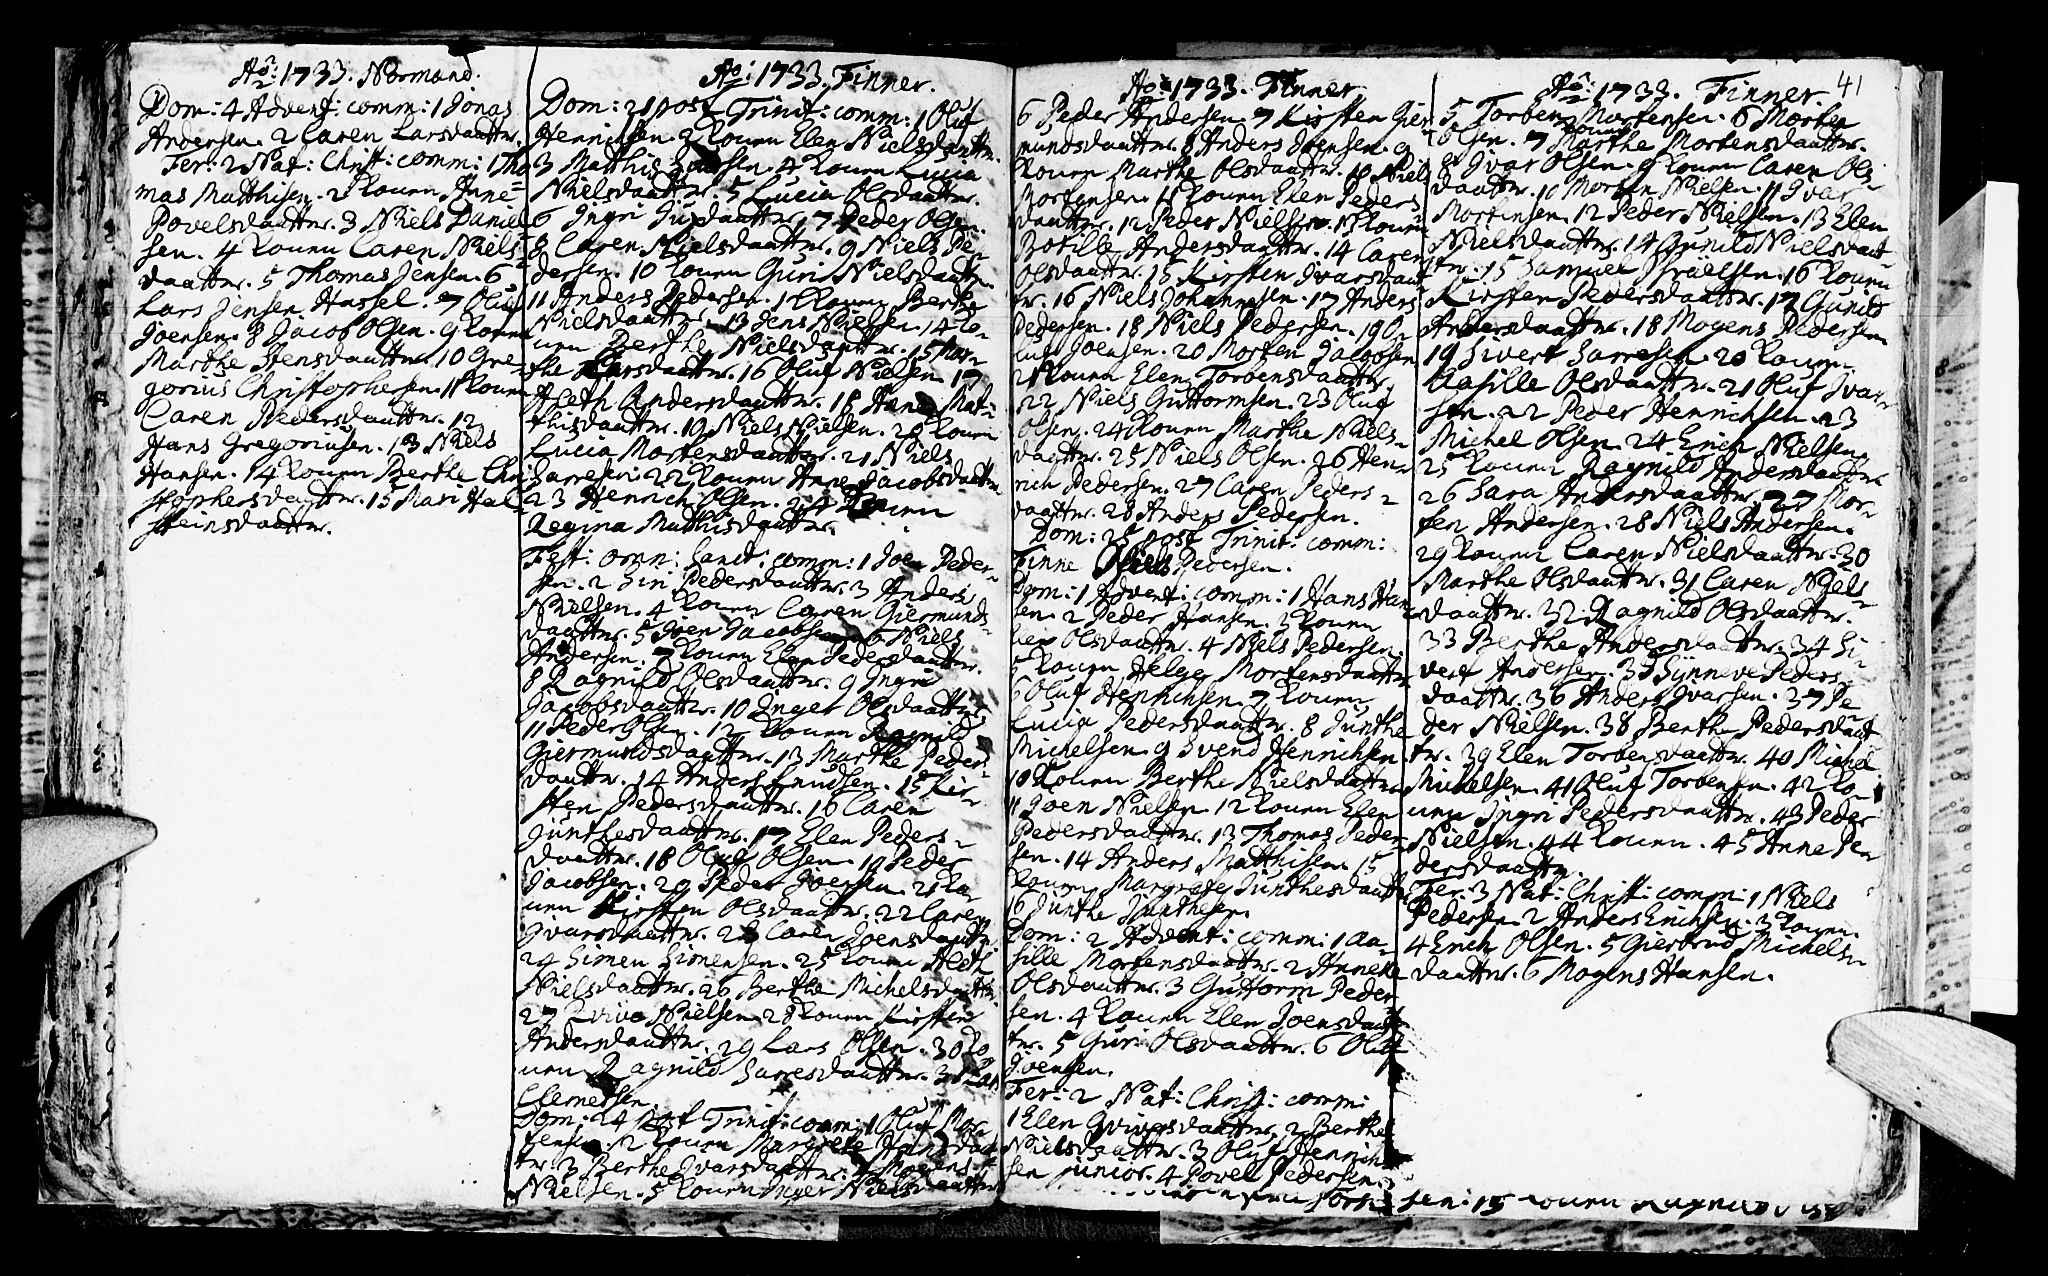 Ao: 1733. Normænd.
Dom: 4 Advent: comm: 1 Jonas
Andersen. 2 Caren Larsdaattr.
Fer: 2 Nat: Christ: comm: 1 Tho
mas Matthisen. 2 Konen Anne
Povelsdaattr. 3 Niels Daniel
sen. 4 Konen Caren Niels
daattr. 5 Thomas Jensen. 6
Lars Jensen Hassel. 7 Oluf
Joensen. 8 Jacob Olsen. 9 Konen
Marthe Jensdaattr. 10 Gre
gorius Christophersen. 11 Konen
Caren Pedersdaattr. 12
Hans Gregoriusen. 13 Niels
Hansen. 14 Konen Berthe Chri
stophersdaattr. 15 Mari Hal
steinsdaattr.
Ao: 1733. Finner.
Dom: 21 post Trinit: comm: 1 Oluf
Henrichsen. 2 Konen Elen Nielsdaattr.
3 Matthis 4 Konen Lucia
Nielsdaattr. 5 Lucia Olsdaattr.
6 Ingri 7 Peder Olsen.
8 Caren Nielsdaattr. 9 Niels Pe
dersen. 10 Konen Guri Nielsdaattr.
11 Anders Pedersen. 12 Konen Berthe
Nielsdaattr. 13 Jens Nielsen. 14 Ko
nen Berthe Nielsdaattr. 15 Mar
the Larsdaattr. 16 Oluf Nielsen. 17
Andersdaattr. 18 Anne Mat
thisdaattr. 19 Niels Nielsen. 20 Konen
Lucia Mortensdaattr. 21 Niels
Sarresen. 22 Konen Anne Jacobsdaattr.
23 Henrich Olsen. 24 Konen
Regina Matthisdaattr.
Fest: omn: Sanct: comm: 1 Joen Peder
sen. 2 Siri Pedersdaattr. 3 Anders
Nielsen. 4 Konen Caren Giermunds
daattr. 5 Joen Jacobsen. 6 Niels
Andersen. 7 Konen Elen Pedersdaattr.
8 Ragnild Olsdaattr. 9 Ingri
Jacobsdaattr. 10 Inger Olsdaattr.
11 Peder Olsen. 12 Konen Ragnild
Giermundsdaattr. 13 Marthe Peders
daattr. 14 Anders Knudsen. 15 Kir
sten Pedersdaattr. 16 Caren
Junthesdaattr. 17 Elen Peders
daattr. 18 Oluf Olsen. 19 Peder
Jacobsen. 20 Peder Joensen. 21 Ko
nen Kirsten Olsdaattr. 22 Caren
Ivarsdaattr. 23 Caren Joensdaattr.
24 Simen Simensen. 25 Konen
Nielsdaattr. 26 Berthe Michelsdaattr.
27 Nielsen. 28 Konen Kirsten
Andersdaattr. 29 Lars Olsen. 30 Ko
nen Ragnild Sarresdaattr. 31
Clemetsen.
Dom: 24 post Trinit: comm: 1 Oluf Mor
tensen. 2 Konen Margrete Hansdaat
tr. 3 Berthe Ivarsdaattr. 4 Mogens
Nielsen. 5 Konen Inger Nielsdaattr.
Ao: 1733. Finner.
6 Peder Andersen. 7 Kirsten Gier
mundsdaattr. 8 Anders Joensen. 9
Konen Marthe Olsdaattr. 10 Niels
Mortensen. 11 Konen Elen Peders
daattr. 12 Peder Nielsen. 13 Konen
Botille Andersdaattr. 14 Caren
Olsdaattr. 15 Kirsten Ivarsdaat
tr. 16 Niels Johannesen. 17 Anders
Pedersen. 18 Niels Pedersen. 19 O
luf Joensen. 20 Morten Jacobsen
21 Konen Elen Torbensdaattr.
22 Niels Guttormsen. 23 Oluf
Olsen. 24 Konen Marthe Niels
daattr. 25 Niels Olsen. 26 Hen
rich Pedersen. 27 Caren Peders
daattr. 28 Anders Pedersen.
Dom: 25 post Trinit: comm:
Finne Niels Pedersen.
Dom: 1 Advent: comm: 1 Hans Han
sen. 2 Peder Hansen. 3 Konen
Olsdaattr. 4 Niels Pedersen.
5 Konen Helge Mortensdaattr.
6 Oluf Henrichsen. 7 Konen
Lucia Pedersdaattr. 8 Junthe
Michelsen. 9 Svend Henrichsen
10 Konen Berthe Nielsdaattr.
11 Joen Nielsen. 12 Konen Elen
Pedersdaattr. 13 Thomas Peder
sen. 14 Anders Matthisen. 15
Konen Margrete Junthesdaattr.
16 Junthe Junthesen.
Dom: 2 Advent: comm: 1 Aa
sille Mortensdaattr. 2 Anneke
Olsdaattr. 3 Guttorm Peder
sen. 4 Konen Elen Joensdaat
tr. 5 Guri Olsdaattr. 6 Oluf
Joensen.
Fer: 2 Nat: Christ: comm:
1 Elen 2 Berthe
Nielsdaattr. 3 Oluf Henrich
sen junior. 4 Povel Pedersen.
Ao: 1733. Finner. 41
5 Torben Mortensen. 6 Morten
Olsen. 7 Konen Marthe Mortensdaattr.
8 Ivar Olsen. 9 Konen Caren Ols
daattr. 10 Morten Nielsen. 11 Ivar
Mortensen. 12 Peder Nielsen. 13 Elen
Nielsdaattr. 14 Gunild Nielsdaat
tr. 15 Samuel Israelsen. 16 Konen
Kirsten Pedersdaattr. 17 Gunild
Andersdaattr. 18 Mogens Pedersen
19 Sivert Sarresen. 20 Konen
Aasille Olsdaattr. 21 Oluf Ivar
sen. 22 Peder Henrichsen. 23
Michel Olsen. 24 Erich Nielsen.
25 Konen Ragnild Andersdaattr.
26 Sara Andersdaattr. 27 Mor
ten Andersen. 28 Niels Andersen.
29 Konen Caren Nielsdaattr. 30
Marthe Olsdaattr. 31 Caren Niels
daattr. 32. Ragnild Olsdaattr.
33 Berthe Andersdaattr. 34 Si
vert Andersen. 35 Synneve Peders
daattr. 36 Anders Ivarsen. 37 Pe
der Nielsen. 38 Berthe Pedersdaat
tr. 39 Elen Torbensdaattr. 40 Michel
Michelsen. 41 Oluf Torbensen. 42 Ko
nen Ingri Pedersdaattr. 43 Peder
Nielsen. 44 Konen. 45 Anne Pe
dersdaattr.
Fer: 3 Nat: Christi: comm: 1 Niels
Pedersen. 2 Anders Erichsen. 3 Konen.
4 Erich Olsen. 5 Giertrud Michels
daattr. 6 Mogens Hansen.
sen. 15 Konen